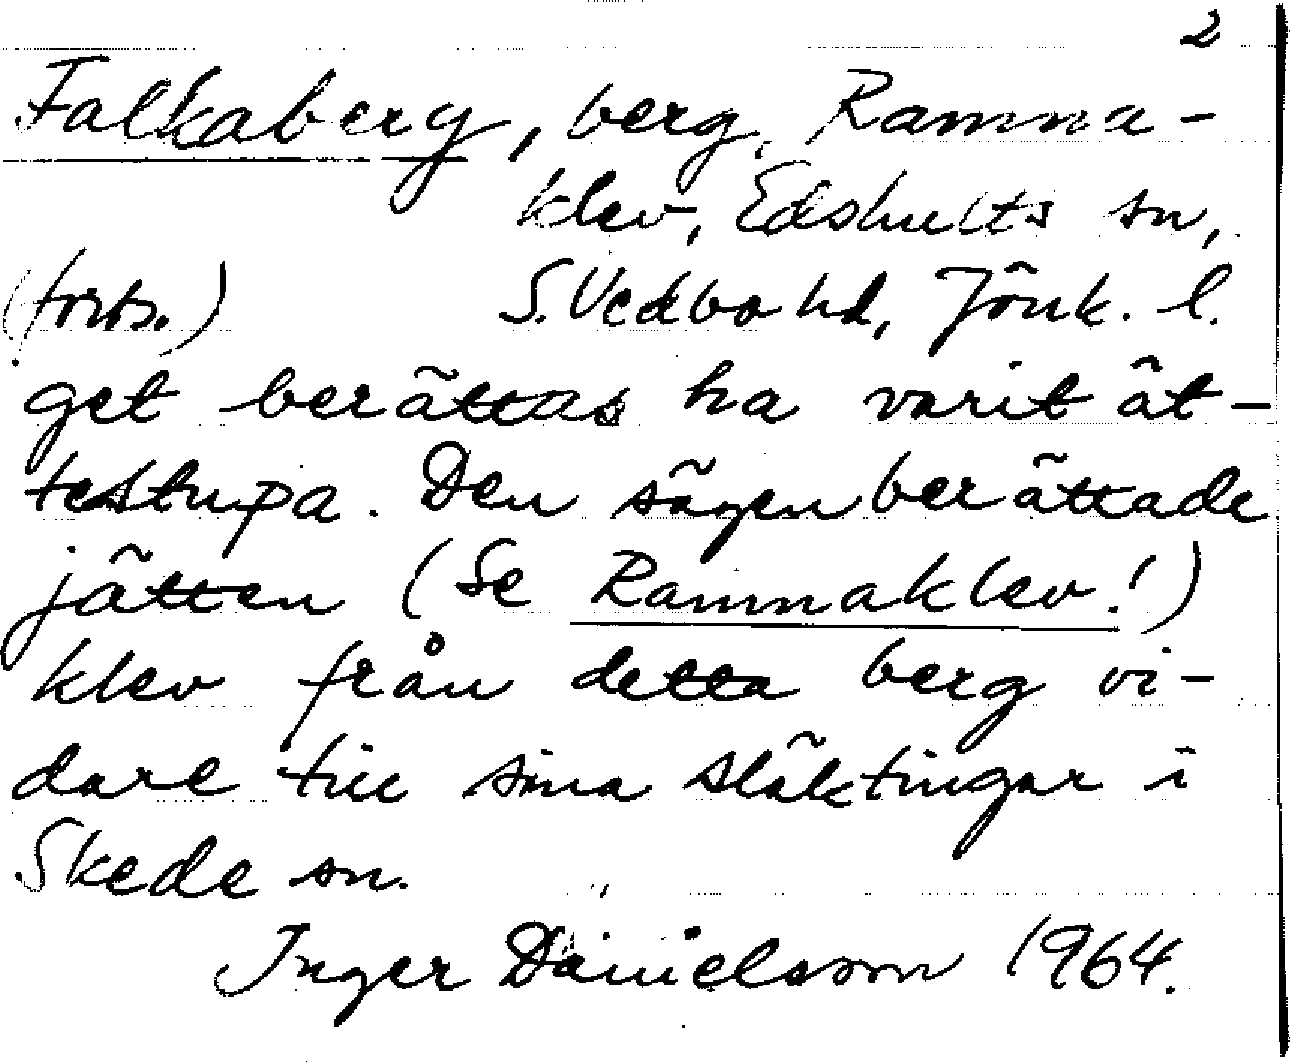 2
Falkaberg, berg, Ramna-
klev, Edshults sn,
(forts.) S. Vedbo hd, Jönk. l.
get berättas ha varit ät-
testupa. Den sägen berättade
jätten (Se Ramnaklev!)
klev från detta berg vi-
dare till sina släktingar i
Skede sn.
Inger Danielsson 1964.